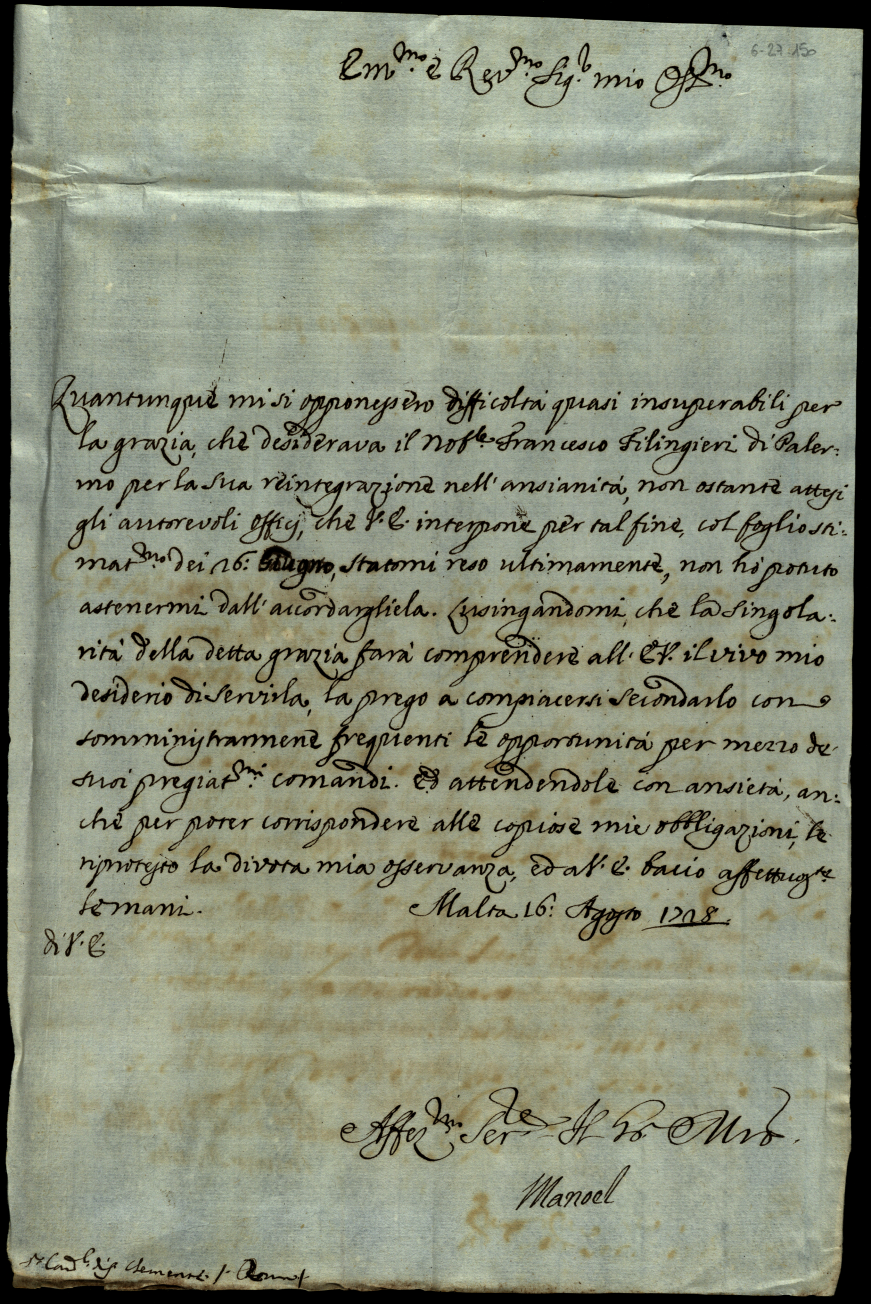 6-27-150
Em.mo e Rev.mo Sig.r mio Oss.mo
Quantunque mi si opponessero difficoltá quasi insuperabili per
la grazia, che desiderava il Nob.le Francesco Filingieri di Paler-
mo per la sua reintegrazione nell'ansianitá, non ostante attesi
gli autorevoli officj, che V. E. interpone per tal fine, col foglio sti-
mat.mo dei 26: Giugno, statomi reso ultimamente, non hó potuto
astenermi dall'accordargliela. Lusingandomi, che la singola-
ritá della detta grazia fará comprendere all'E.V. il vivo mio
desiderio di servirla, la prego a compiacersi secondarlo con
somministrarmene frequenti le opportunitá per mezzo de
suoi pregiat.mi comandi. Ed attendendole con ansietá, an-
che per poter corrispondere alle copiose mie obbligazioni, le
riprotesto la divota mia osservanza, ed a V. E. bacio affettuos.te
le mani. Malta 16: Agosto 1728.
di V. E.
Affez.mo Ser.re Il G. Mro.
Manoel
S.r Card.l Clemente / Roma /